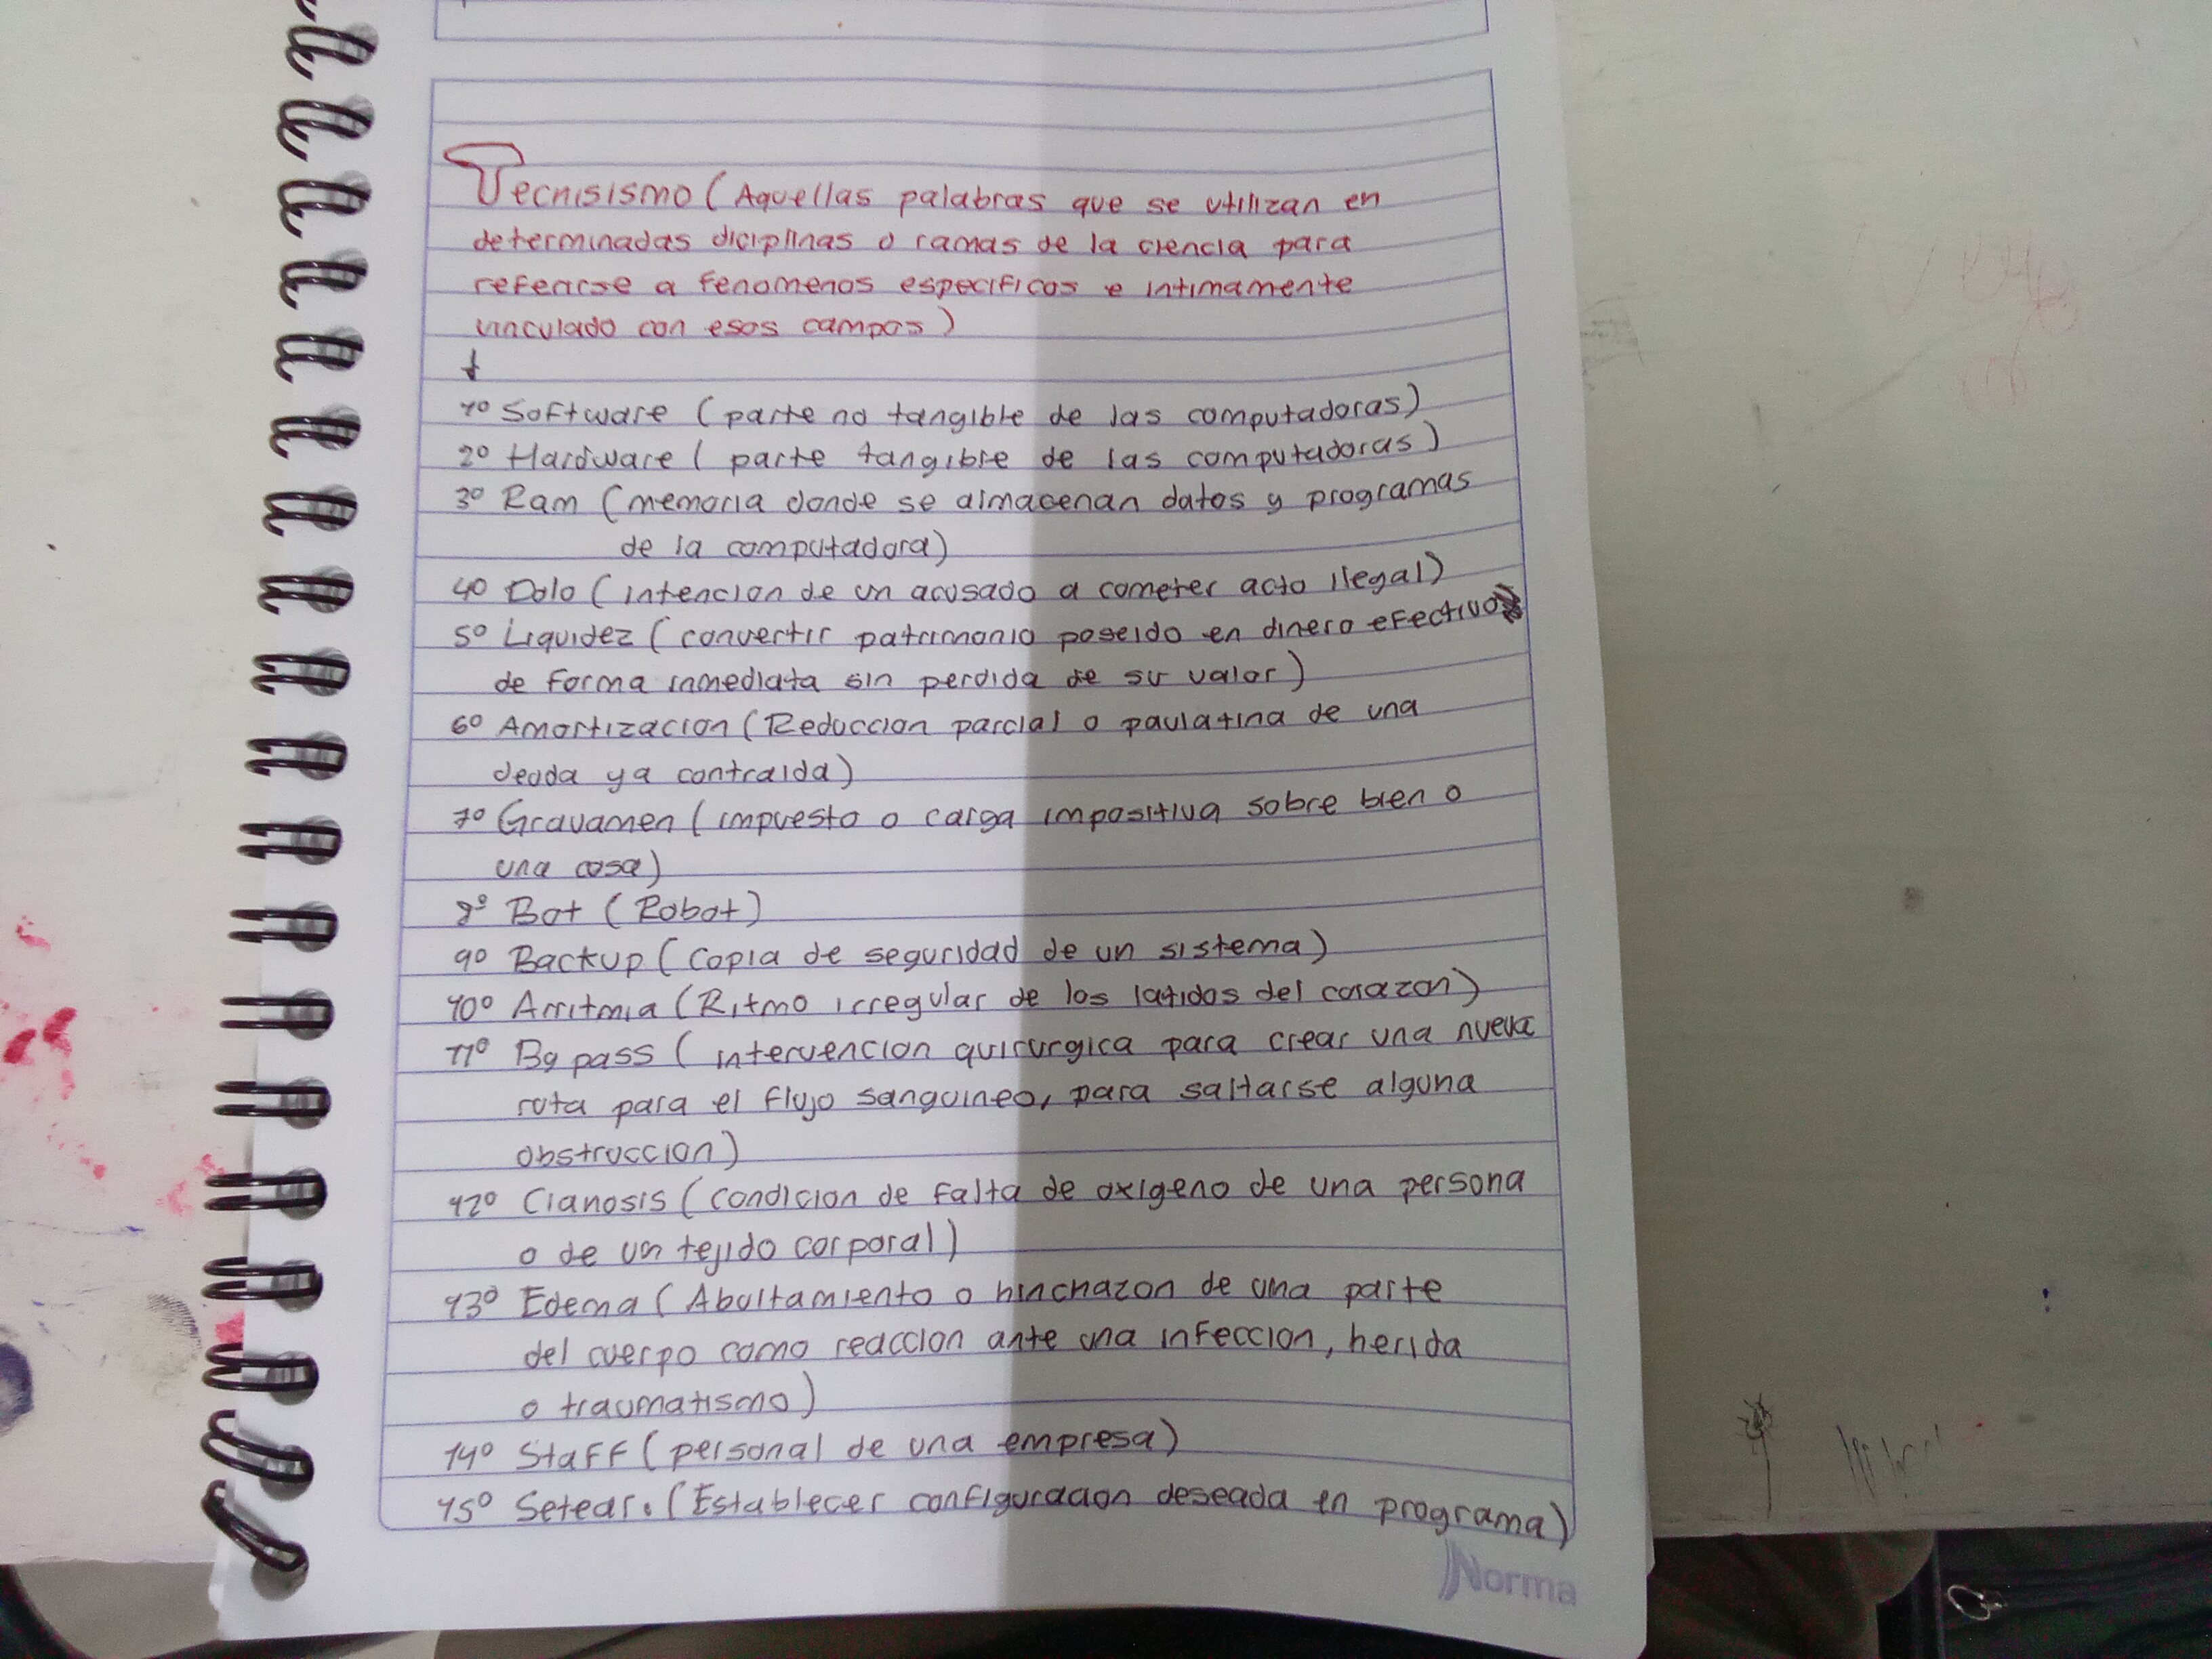 Tecnisismo (Aquellas palabras que se utilizan en
determinadas diciplinas o ramas de la ciencia para
referirse a fenomenos especificos e intimamente
vinculado con esos campos)
1º Software (parte no tangible de las computadoras)
2º Hardware ( parte tangible de las computadoras)
3º Ram (memoria donde se almacenan datos y programas
de la computadora)
4º Dolo (intencion de un acusado a cometer acto ilegal)
5º Liquidez (convertir patrimonio poseido en dinero efectivo
de forma inmediata sin perdida de su valor)
6º Amortizacion (Reduccion parcial o paulatina de una
deuda ya contraida)
7º Gravamen (impuesto o carga impositiva sobre bien o
una cosa)
8º Bot (Robot)
9º Backup (Copia de seguridad de un sistema)
10º Arritmia (Ritmo irregular de los latidos del corazon)
11º By pass ( intervencion quirurgica para crear una nueva
ruta para el flujo sanguineo, para saltarse alguna
obstruccion)
12º Cianosis (condicion de falta de oxigeno de una persona
o de un tejido corporal)
13º Edema (Abultamiento o hinchazon de una parte
del cuerpo como reaccion ante una infeccion, herida
o traumatismo)
14º Staff (personal de una empresa)
15º Setear. (Establecer configuracion deseada en programa)
Norma